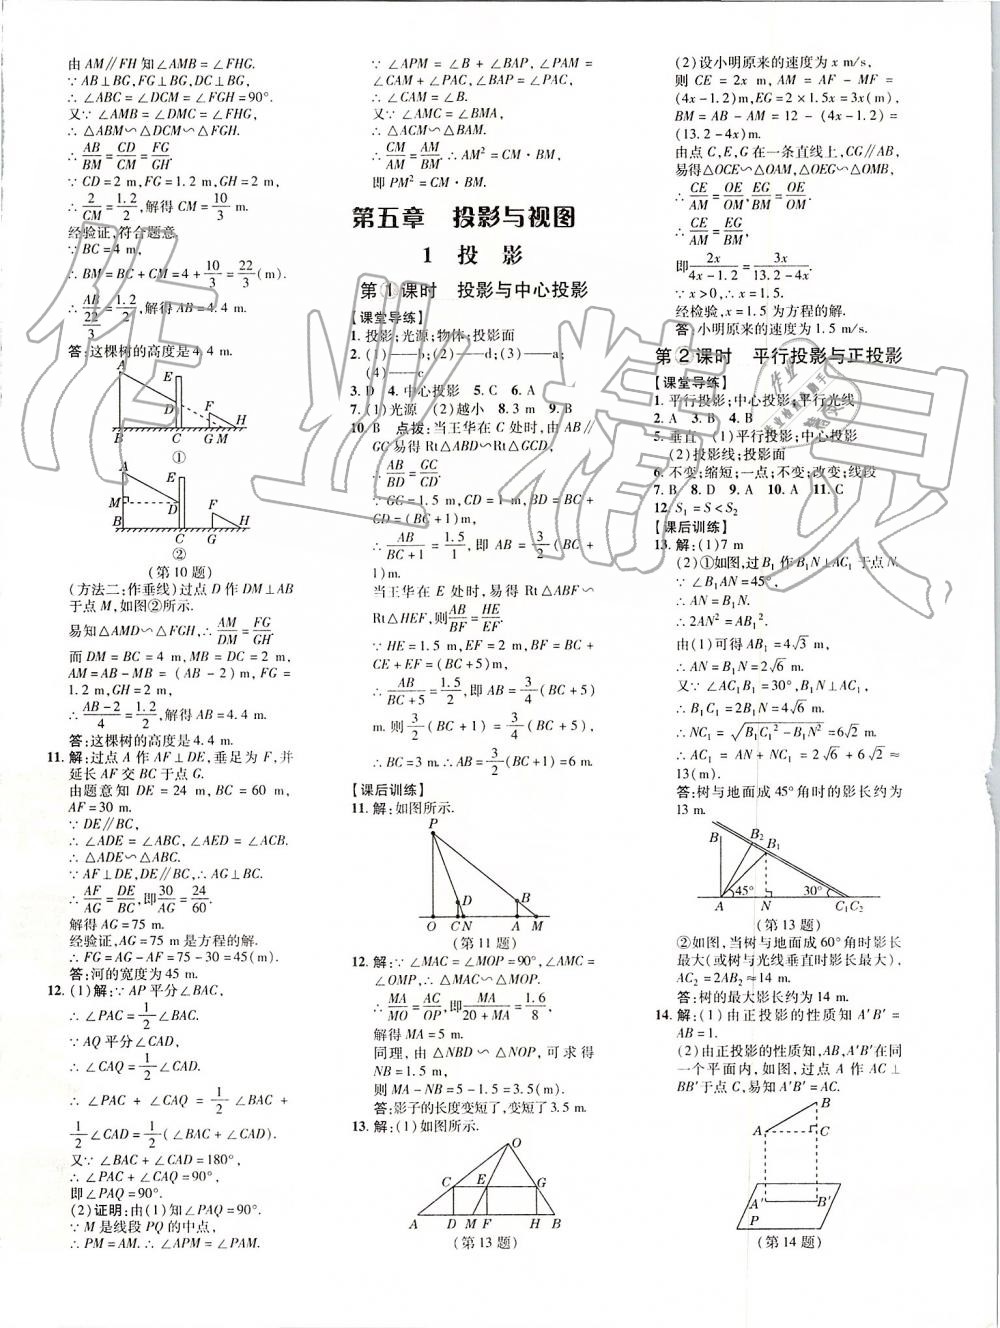 由AM∥FH知∠AMB=∠FHG.
∵AB⊥BG,FG⊥BG,DC⊥BG,
∴∠ABC=∠DCM=∠FGH=90°.
又∵∠AMB=∠DMC=∠FHG,
∴△ABM∽△DCM∽△FGH.
∴AB/BM=CD/CM=FG/GH.
∵CD=2 m,FG=1.2 m,GH=2 m,
∴2/CM=1.2/2,解得CM=10/3 m.
经验证,符合题意.
∵BC=4 m,
∴BM=BC+CM=4+10/3=22/3(m).
∴AB/(22/3)=1.2/2,解得AB=4.4 m.
答:这棵树的高度是4.4 m.
A E D F B C G M H
①
A E M D F B C G H
②
(第10题)
(方法二:作垂线)过点D作DM⊥AB
于点M,如图②所示.
易知△AMD∽△FGH,∴AM/DM=FG/GH.
而DM=BC=4 m,MB=DC=2 m,
AM=AB-MB=(AB-2)m,FG=
1.2 m,GH=2 m,
∴(AB-2)/4=1.2/2,解得AB=4.4 m.
答:这棵树的高度是4.4 m.
11.解:过点A作AF⊥DE,垂足为F,并
延长AF交BC于点G.
由题意知DE=24 m,BC=60 m,
AF=30 m.
∵DE∥BC,
∴∠ADE=∠ABC,∠AED=∠ACB.
∴△ADE∽△ABC.
∵AF⊥DE,DE∥BC,∴AG⊥BC.
∴AF/AG=DE/BC,即30/AG=24/60.
解得AG=75 m.
经验证,AG=75 m是方程的解.
∴FG=AG-AF=75-30=45(m).
答:河的宽度为45 m.
12.(1)解:∵AP平分∠BAC,
∴∠PAC=1/2∠BAC.
∵AQ平分∠CAD,
∴∠CAQ=1/2∠CAD.
∴∠PAC+∠CAQ=1/2∠BAC+
1/2∠CAD=1/2(∠BAC+∠CAD).
又∵∠BAC+∠CAD=180°,
∴∠PAC+∠CAQ=90°.
即∠PAQ=90°.
(2)证明:由(1)知∠PAQ=90°.
∵M是线段PQ的中点,
∴PM=AM.∴∠APM=∠PAM.
∵∠APM=∠B+∠BAP,∠PAM=
∠CAM+∠PAC,∠BAP=∠PAC,
∴∠CAM=∠B.
又∵∠AMC=∠BMA,
∴△ACM∽△BAM.
∴CM/AM=AM/BM.∴AM²=CM·BM,
即PM²=CM·BM.
第五章 投影与视图
1 投影
第①课时 投影与中心投影
【课堂导练】
1.投影;光源;物体;投影面
2.(1)——b;(2)——d;(3)——a;
(4)——c
3.D 4.中心投影 5.C 6.A
7.(1)光源 (2)越小 8.3 m 9.B
10.B 点拨:当王华在C处时,由AB∥
GC易得Rt△ABD∽Rt△GCD,
∴AB/BD=GC/CD.
∵GC=1.5 m,CD=1 m,BD=BC+
CD=(BC+1)m,
∴AB/(BC+1)=1.5/1,即AB=3/2(BC+1)m.
当王华在E处时,易得Rt△ABF∽
Rt△HEF,则AB/BF=HE/EF.
∵HE=1.5 m,EF=2 m,BF=BC+
CE+EF=(BC+5)m,
∴AB/(BC+5)=1.5/2,即AB=3/4(BC+5)
m.则3/2(BC+1)=3/4(BC+5)m,
∴BC=3 m.∴AB=3/2(BC+1)=6 m.
【课后训练】
11.解:如图所示.
P D B O C N A M
(第11题)
12.解:∵∠MAC=∠MOP=90°,∠AMC=
∠OMP,∴△MAC∽△MOP.
∴MA/MO=AC/OP,即MA/(20+MA)=1.6/8,
解得MA=5 m.
同理,由△NBD∽△NOP,可求得
NB=1.5 m,
则MA-NB=5-1.5=3.5(m).
答:影子的长度变短了,变短了3.5 m.
13.解:(1)如图所示.
O C E G A D M F H B
(第13题)
(2)设小明原来的速度为x m/s,
则CE=2x m,AM=AF-MF=
(4x-1.2)m,EG=2×1.5x=3x(m),
BM=AB-AM=12-(4x-1.2)=
(13.2-4x)m.
由点C,E,G在一条直线上,CG∥AB,
易得△OCE∽△OAM,△OEG∽△OMB,
∴CE/AM=OE/OM,EG/BM=OE/OM,
∴CE/AM=EG/BM,
即2x/(4x-1.2)=3x/(13.2-4x).
∵x>0,∴x=1.5.
经检验,x=1.5为方程的解.
答:小明原来的速度为1.5 m/s.
第②课时 平行投影与正投影
【课堂导练】
1.平行投影;中心投影;平行光线
2.A 3.B 4.B
5.垂直 (1)平行投影;中心投影
(2)投影线;投影面
6.不变;缩短;一点;不变;改变;线段
7.B 8.D 9.A 10.A 11.C
12.S₁=S<S₂
【课后训练】
13.解:(1)7 m
(2)①如图,过B₁作B₁N⊥AC₁于点N.
∵∠B₁AN=45°,
∴AN=B₁N.
∴2AN²=AB₁².
由(1)可得AB₁=4√3 m,
∴AN=B₁N=2√6 m.
又∵∠AC₁B₁=30°,B₁N⊥AC₁,
∴B₁C₁=2B₁N=4√6 m.
∴NC₁=√(B₁C₁²-B₁N²)=6√2 m.
∴AC₁=AN+NC₁=2√6+6√2≈
13(m).
答:树与地面成45°角时的影长约为
13 m.
B B₂ B₁ 45° 30° A N C₁C₂
(第13题)
②如图,当树与地面成60°角时影长
最大(或树与光线垂直时影长最大),
AC₂=2AB₂≈14 m.
答:树的最大影长约为14 m.
14.解:(1)由正投影的性质知A′B′=
AB=1.
(2)由正投影的性质知,AB,A′B′在同
一个平面内,如图,过点A作AC⊥
BB′于点C,易知A′B′=AC.
B A C A′ B′ P
(第14题)
作业精灵